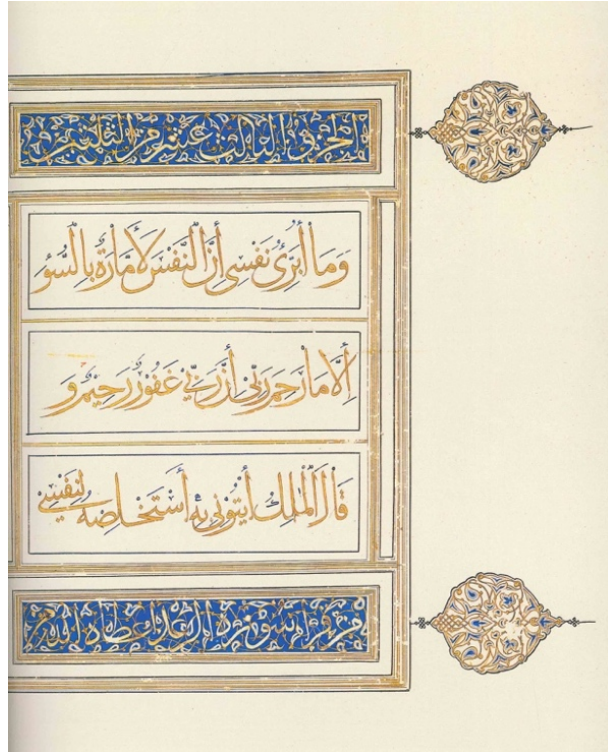 الجزء الثالث عشر من الثلثين
وَمَا أُبَرِّئُ نَفْسِي إِنَّ النَّفْسَ لَأَمَّارَةٌ بِالسُّوءِ
إِلَّا مَا رَحِمَ رَبِّي إِنَّ رَبِّي غَفُورٌ رَحِيمٌ وَ
قَالَ الْمَلِكُ ائْتُونِي بِهِ أَسْتَخْلِصْهُ لِنَفْسِي
من قرأ سورة الرعد اعطاه الله من